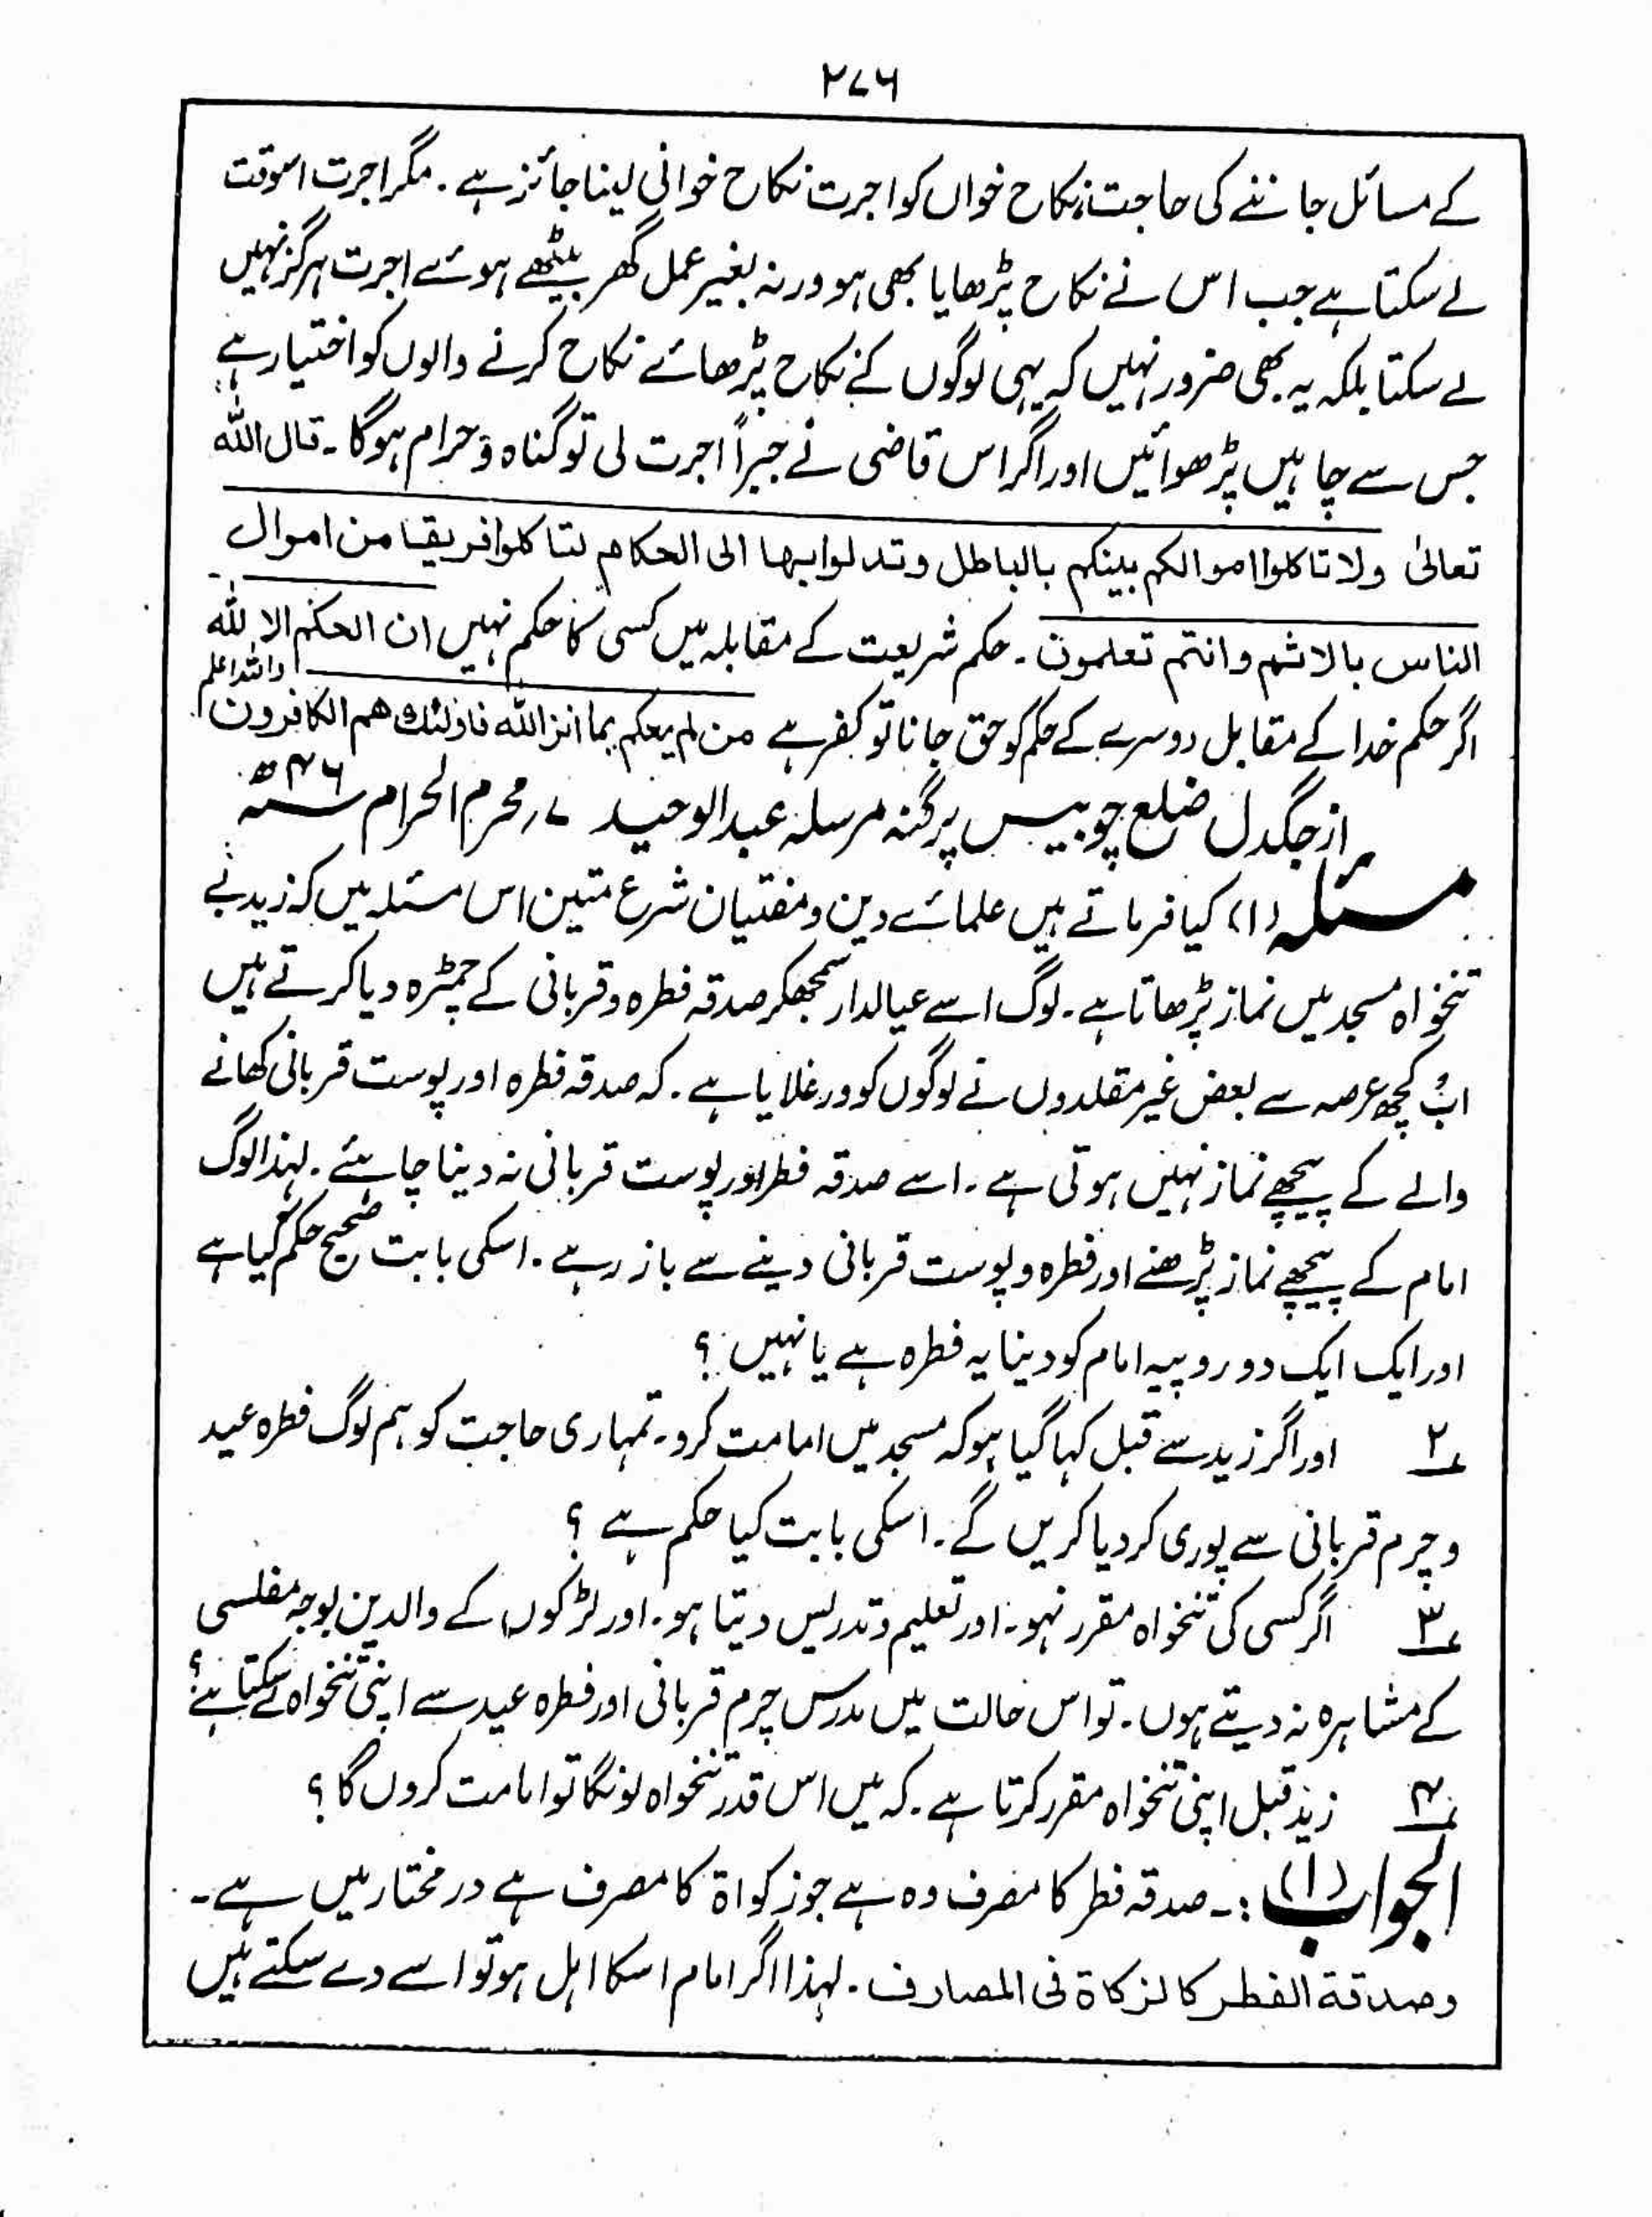 ۲۷۶
کے مسائل جاننے کی حاجت، نکاح خواں کو اجرت نکاح خوانی لینا جائز ہے۔ مگر اجرت اسوقت
لے سکتا ہے جب اس نے نکاح پڑھایا بھی ہو ورنہ بغیر عمل گھر بیٹھے ہوئے اجرت ہرگز نہیں
لے سکتا بلکہ یہ بھی ضرور نہیں کہ یہی لوگوں کے نکاح پڑھائے نکاح کرنے والوں کو اختیار ہے
جس سے چاہیں پڑھوائیں اور اگر اس قاضی نے جبراً اجرت لی تو گناہ و حرام ہوگا۔ قال اللہ
تعالیٰ ولا تاکلوا اموالکم بینکم بالباطل وتدلوا بہا الی الحکام لتاکلوا فریقا من اموال
الناس بالاثم وانتم تعلمون۔ حکم شریعت کے مقابلہ میں کسی کا حکم نہیں ان الحکم الا للہ
اگر حکم خدا کے مقابل دوسرے کے حکم کو حق جانا تو کفر ہے من لم یحکم بما انزل اللہ فاولئک ھم الکافرون۔ واللہ اعلم
از جگدل ضلع چوبیس پرگنہ مرسلہ عبدالوحید ۷؍ محرم الحرام سنہ ۴۶ھ
مسئلہ (۱) کیا فرماتے ہیں علمائے دین و مفتیان شرع متین اس مسئلہ میں کہ زید بے
تنخواہ مسجد میں نماز پڑھاتا ہے۔ لوگ اسے عیالدار سمجھکر صدقہ فطرہ و قربانی کے چمڑہ دیا کرتے ہیں
اب کچھ عرصہ سے بعض غیر مقلدوں نے لوگوں کو ورغلایا ہے۔ کہ صدقہ فطرہ اور پوست قربانی کھانے
والے کے پیچھے نماز نہیں ہوتی ہے۔ اسے صدقہ فطر اور پوست قربانی نہ دینا چاہئے۔ لہذا لوگ
امام کے پیچھے نماز پڑھنے اور فطرہ و پوست قربانی دینے سے باز رہے۔ اسکی بابت صحیح حکم کیا ہے
اور ایک ایک دو روپیہ امام کو دینا یہ فطرہ ہے یا نہیں؟
۲؎ اور اگر زید سے قبل کہا گیا ہو کہ مسجد میں امامت کرو۔ تمہاری حاجت کو ہم لوگ فطرہ عید
و چرم قربانی سے پوری کر دیا کریں گے۔ اسکی بابت کیا حکم ہے؟
۳؎ اگر کسی کی تنخواہ مقرر نہو۔ اور تعلیم و تدریس دیتا ہو۔ اور لڑکوں کے والدین بوجہ مفلسی
کے مشاہرہ نہ دیتے ہوں۔ تو اس حالت میں مدرس چرم قربانی اور فطرہ عید سے اپنی تنخواہ لے سکتا ہے؟
۴؎ زید قبل اپنی تنخواہ مقرر کرتا ہے۔ کہ میں اس قدر تنخواہ لونگا تو امامت کروں گا؟
الجواب (۱) :۔ صدقہ فطر کا مصرف وہ ہے جو زکواۃ کا مصرف ہے در مختار میں ہے۔
وصدقۃ الفطر کالزکاۃ فی المصارف۔ لہذا اگر امام اسکا اہل ہو تو اسے دے سکتے ہیں